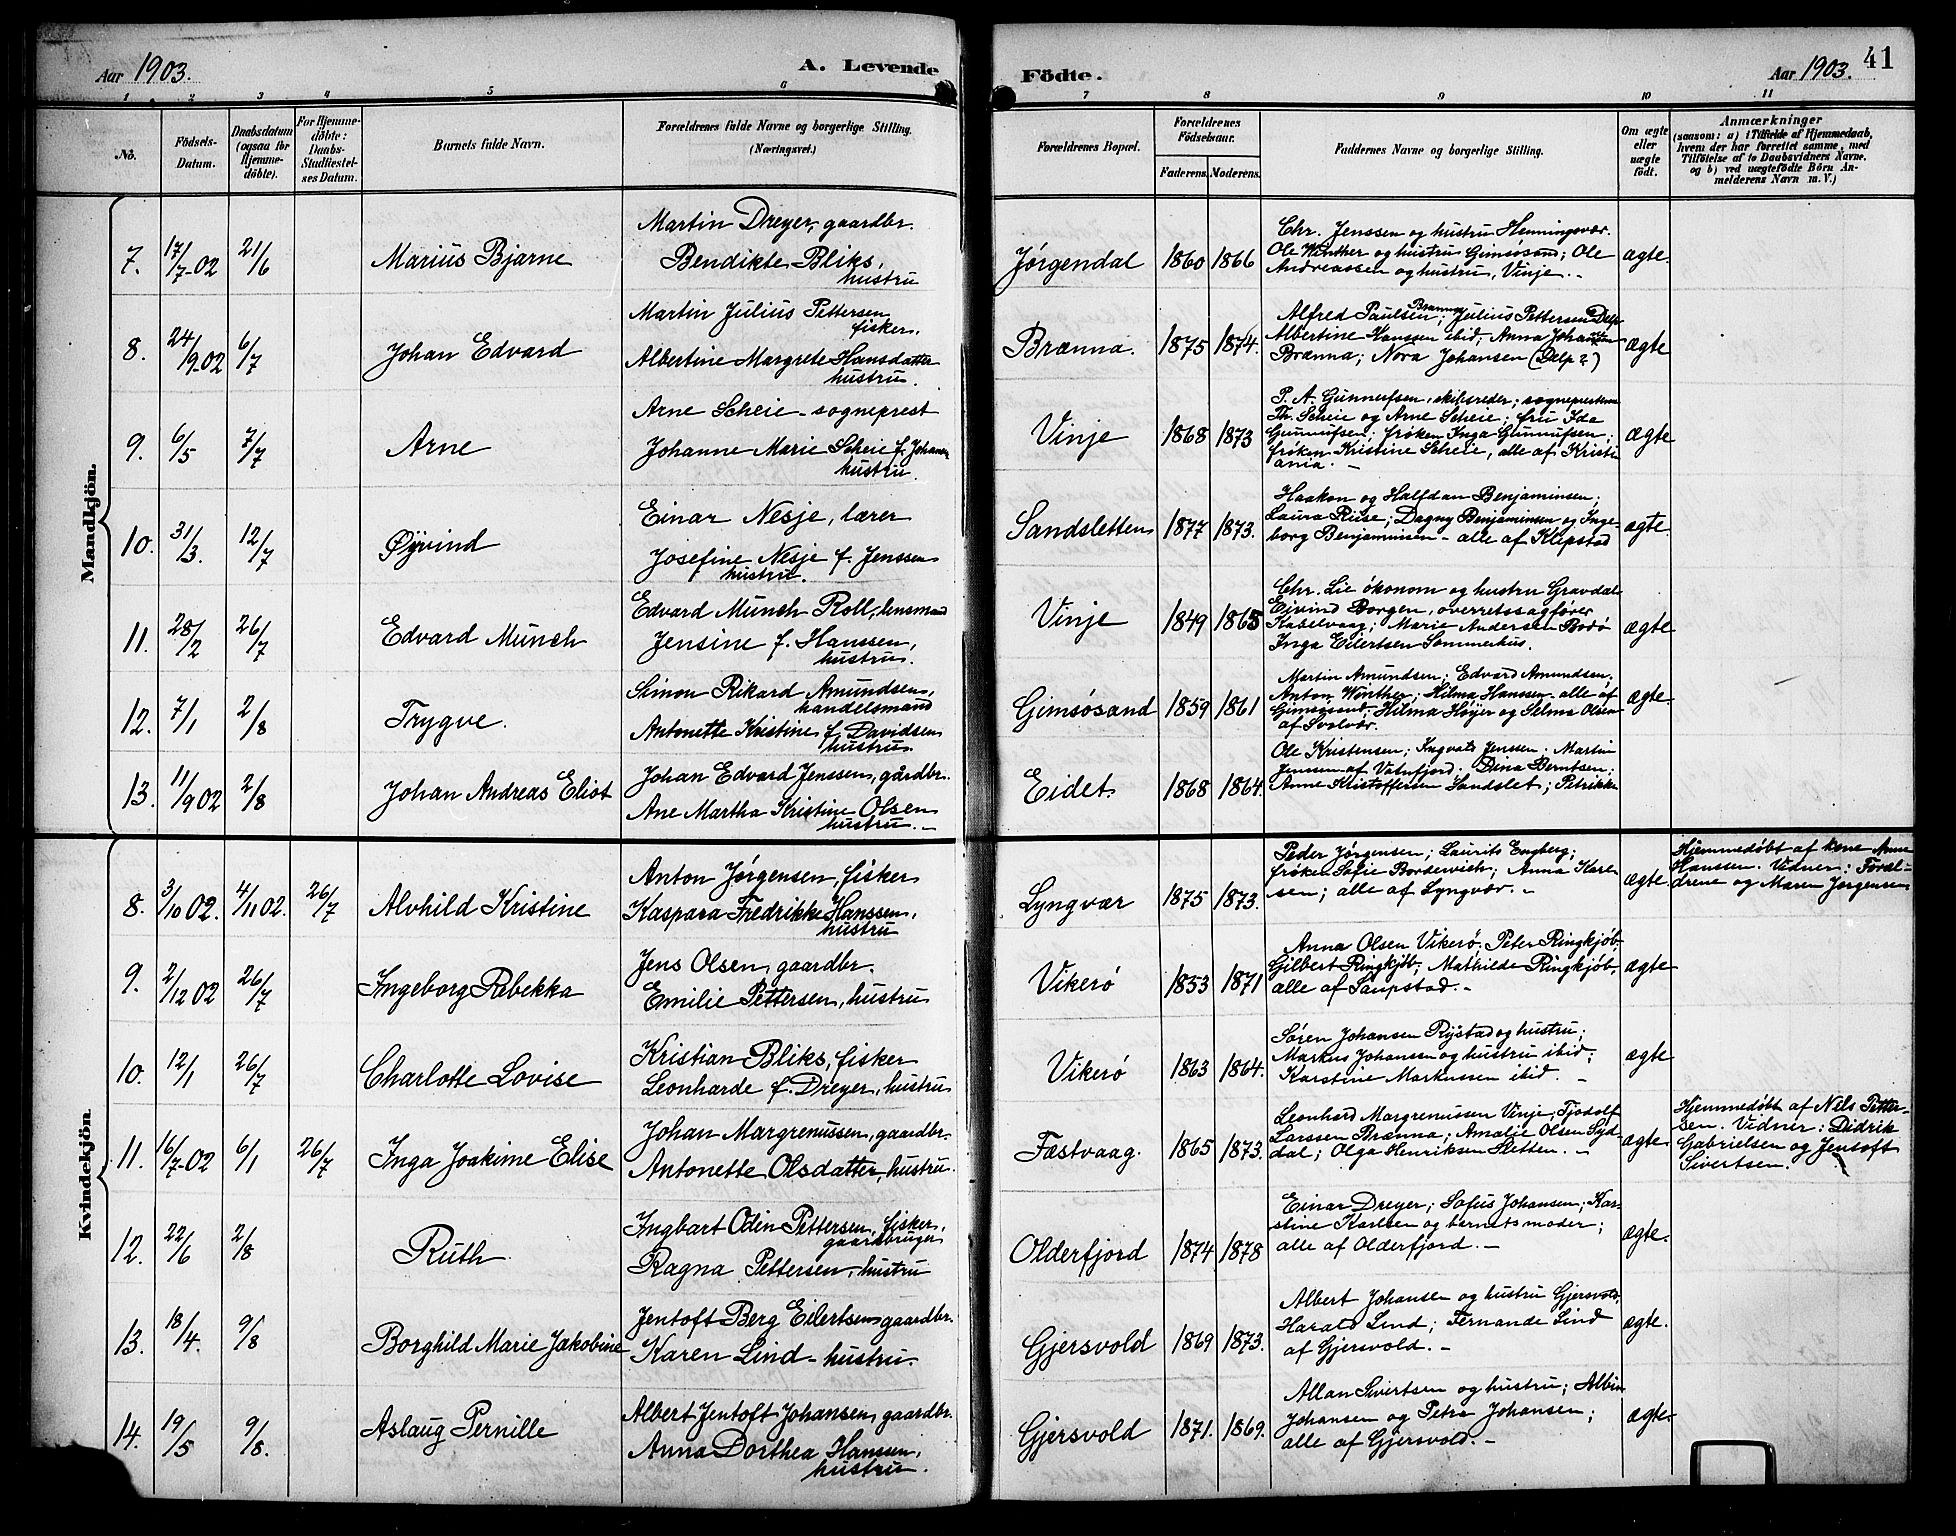 Aar 1903.
A. Levende
Födte.
Aar 1903.
41
1 2 3 4 5 6 7 8 9 10 11
No.
Födsels-
Datum.
Daabsdatum
(ogsaa for
Hjemme-
döbte).
For Hjemme-
döbte:
Daabs-
Stadfæstel-
ses Datum.
Barnets fulde Navn.
Forældrenes fulde Navne og borgerlige Stilling.
(Næringsvei.)
Forældrenes Bopæl.
Forældrenes
Födselsaar.
Faderens. Moderens.
Faddernes Navne og borgerlig Stilling.
Om ægte
eller
uægte
födt.
Anmærkninger
(saasom: a) i Tilfælde af Hjemmedaab,
hvem der har forrettet samme, med
Tilföielse af to Daabsvidners Navne.
og b) ved uægtefödte Börn An-
melderens Navn m. V.)
Mandkjön.
7. 17/7-02 21/6 Marius Bjarne
Martin Dreyer, gaardbr.
Bendikte Bliks,
hustru
Jørgendal 1860 1866
Chr. Jenssen og hustru Henningsvær.
Ole Winther og hustru Gimsøsand; Ole
Andreassen og hustru, Vinje. -
ægte.
8. 24/9-02 6/7 Johan Edvard
Martin Julius Pettersen
fisker.
Albertine Margrete Hansdatter
hustru.
Brænna. 1875 1874.
Alfred Paulsen Brænna; Julius Pettersen Delp
Albertine Hanssen ibid; Anna Johansen
Brænna; Nora Johansen (Delp?)
ægte
9. 6/5 7/7 Arne
Arne Scheie - sogneprest
Johanne Marie Scheie f. Johansen
hustru.
Vinje 1868 1873
P. A. Gunnufsen, skibsreder; sogneprestene
Th. Scheie og Arne Scheie; fru Ida
Gunnufsen; frøken Inga Gunnufsen;
frøken Kristine Scheie, alle af Kristi
ania. -
ægte
10. 31/3. 12/7 Øyvind
Einar Nesje, lærer
Josefine Nesje f. Jenssen
hustru.
Sandsletten 1877 1873.
Haakon og Halfdan Benjaminsen;
Laura Riise; Dagny Benjaminsen og Inge-
borg Benjaminsen - alle af Klepstad
ægte.
11. 28/2 26/7 Edvard Munch
Edvard Munch Roll, lensmand
Jensine f. Hanssen,
hustru.
Vinje 1849 1865
Chr. Lie økonom og hustru Gravdal
Eivind Borgen, overretssagfører
Kabelvaag; Marie Andersen Bodø
Inga Eilertsen Sommerhus.
ægte
12. 7/1 2/8 Trygve.
Simon Rikard Amundsen,
handelsmand
Antonette Kristine f. Davidsen
hustru.
Gimsøsand 1859 1861
Martin Amundsen; Edvard Amundsen;
Anton Winther; Hilma Hanssen - alle af
Gimsøsand. Hilma Høyer og Selma Olsen
af Svolvær.
ægte.
13. 11/9 02 2/8 Johan Andreas Eliot
Johan Edvard Jenssen, gårdbr.
Ane Martha Kristine Olsen
hustru. -
Eidet. 1868 1864.
Ole Kristensen; Ingvald Jenssen. Martin
Jenssen af Vatnfjord. Dina Berntsen;
Anne Kristoffersen Sandslet; Petrikke
Kvindekjön
8. 3/10 02. 4/11 02. 26/7 Alvhild Kristine
Anton Jørgensen, fisker
Kaspara Fredrikke Hanssen,
hustru
Lyngvær 1875 1873.
Peder Jørgensen; Laurits Engberg;
frøken Sofie Bordewich; Anna Kare-
sen; alle af Lyngvær. -
ægte
Hjemmedøbt af kone Anne
Hanssen. Vidner: Foræl-
drene og Maren Jørgensen
9. 2/12 02 26/7 Ingeborg Rebekka
Jens Olsen, gaardbr.
Emilie Pettersen, hustru
Vikerø 1853 1871
Anna Olsen Vikerø. Peter Ringkjøb,
Gilbert Ringkjøb; Mathilde Ringkjøb,
alle af Saupstad. -
ægte
10. 12/1 26/7 Charlotte Lovise
Kristian Bliks, fisker
Leonharde f. Dreyer, hustru
Vikerø 1863 1864.
Søren Johansen Rystad og hustru;
Markus Johansen og hustru ibid;
Karstine Markussen ibid. -
ægte
11. 16/7-02 6/1 26/7 Inga Joakime Elise
Johan Margrenussen, gaardbr.
Antonette Olsdatter, hustru.
Fæstvaag. 1865 1873.
Leonhard Margrenussen Vinje; Tjodolf
Larssen Brænna; Amalie Olsen Syd-
dal; Olga Henriksen Sletten. -
ægte
Hjemmedøbt af Nels Petter-
sen. Vidner: Didrik
Gabrielsen og Jentoft
Sivertsen.
12. 22/6 2/8 Ruth
Ingbart Odin Pettersen, fisker,
gaardbruger
Ragna Pettersen, hustru
Olderfjord 1874 1878
Einar Dreyer; Sofus Johansen; Kar-
stine Karlsen og barnets moder;
alle af Olderfjord. -
ægte.
13. 18/4. 9/8 Borghild Marie Jakobine
Jentoft Berg Eilertsen gaardbr.
Karen Lind - hustru.
Gjersvold 1869 1873.
Albert Johansen og hustru Gjersvold,
Harald Lind; Fernande Lind
af Gjersvold. -
ægte.
14. 19/5 9/8. Aslaug Pernille
Albert Jentoft Johansen, gaardbr.
Anna Dorthea Hansen,
hustru.
Gjersvold 1871. 1869.
Allan Sivertsen og hustru; Albin
Johansen og Petra Johansen;
alle af Gjersvold. -
ægte